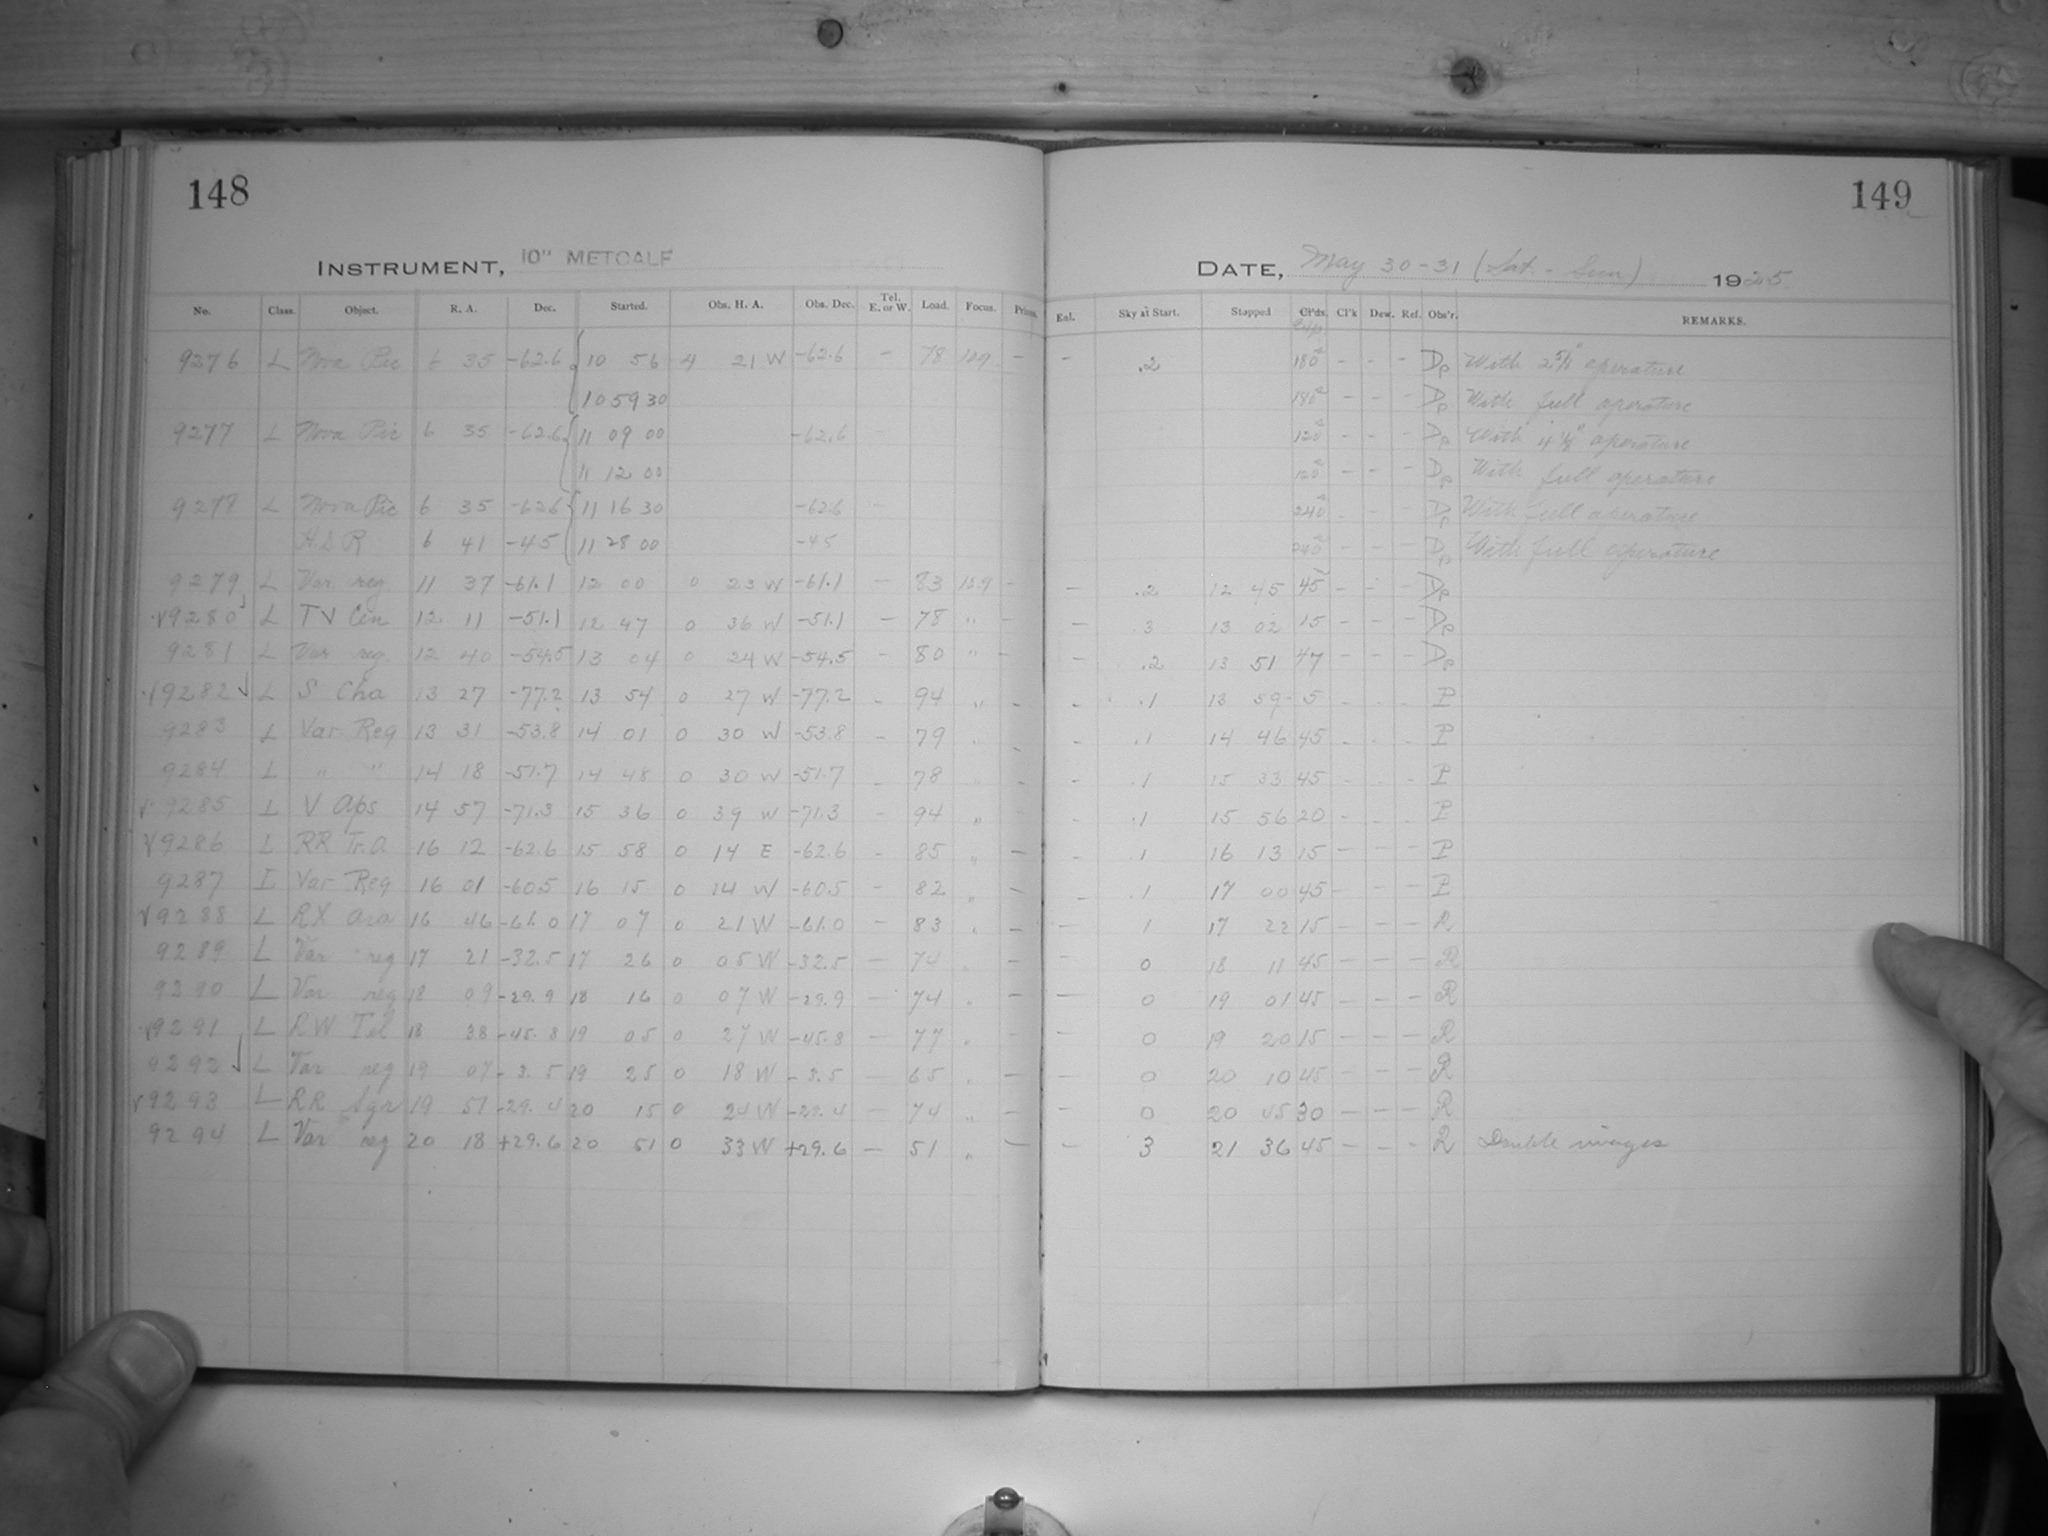 148
149
INSTRUMENT, 10" METCALF
DATE, May 30-31 (Sat. - Sun) 1925
No. Class. Object. R. A. Dec. Started. Obs. H. A. Obs. Dec. Tel. E. or W. Load. Focus. Prism. Eul. Sky at Start. Stopped Cl'ds. Cl'k Dew. Ref. Obs'r. REMARKS.
Exp.
9276 L Nova Pic 6 35 -62.6 10 56 4 21 W -62.6 - 78 - - .2 180 - - - With aperature
10 59 30 180 - - - With full aperature
9277 L Nova Pic 6 35 -62.6 11 09 00 -62.6 120 - - - With aperature
11 12 00 120 - - - With full aperature
9278 L Nova Pic 6 35 -62.6 11 16 30 -62.6 - 240 - - - With full aperature
6 41 -45 11 28 00 -45 240 - - - With full aperature
9279 L Var reg. 11 37 -61.1 12 00 0 23 W -61.1 - 83 - - .2 12 45 45 - - -
√9280 L TV Cen 12 11 -51.1 12 47 0 36 W -51.1 - 78 " - .3 13 02 15 - - -
9281 L Var reg. 12 40 -54.5 13 04 0 24 W -54.5 - 80 " - - .2 13 51 47 - - -
√9282 √ L S Cha 13 27 -77.2 13 54 0 27 W -77.2 - 94 " - - .1 13 59 5 - - - P
9283 L Var Reg 13 31 -53.8 14 01 0 30 W -53.8 - 79 " - - .1 14 46 45 - - - P
9284 L " " 14 18 -51.7 14 48 0 30 W -51.7 - 78 " - - .1 15 33 45 - - - P
√ 9285 L V Aps 14 57 -71.3 15 36 0 39 W -71.3 - 94 " - .1 15 56 20 - - - P
√9286 L RR Tr.A 16 12 -62.6 15 58 0 14 E -62.6 - 85 " - - .1 16 13 15 - - - P
9287 L Var Reg 16 01 -60.5 16 15 0 14 W -60.5 - 82 " - - .1 17 00 45 - - - P
√9288 L RX Ara 16 46 -61.0 17 07 0 21 W -61.0 - 83 " - - 1 17 22 15 - - - R
9289 L Var reg 17 21 -32.5 17 26 0 05 W -32.5 - 74 " - - 0 18 11 45 - - - R
9290 L Var reg 18 09 -29.9 18 16 0 07 W -29.9 - 74 " - - 0 19 01 45 - - - R
√9291 L RW Tel 18 38 -45.8 19 05 0 27 W -45.8 - 77 " - - 0 19 20 15 - - - R
9292 √ L Var reg 19 07 -3.5 19 25 0 18 W -3.5 - 65 " - - 0 20 10 45 - - - R
√9293 L RR Sgr 19 51 -29.4 20 15 0 24 W -29.4 - 74 " - - 0 20 45 30 - - - R
9294 L Var reg 20 18 +29.6 20 51 0 33 W +29.6 - 51 " - - 3 21 36 45 - - - R Double images